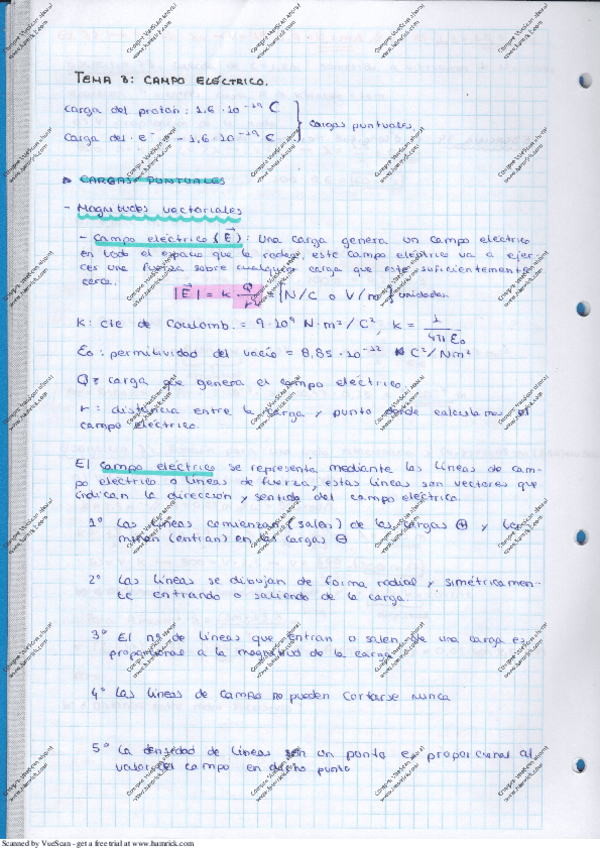 TEMA 8: CAMPO ELÉCTRICO.
carga del protón: 1,6 · 10⁻¹⁹ C
cargas puntuales.
carga del e⁻ - 1,6 · 10⁻¹⁹ C
CARGAS PUNTUALES
- Magnitudes vectoriales
- Campo eléctrico (E⃗): Una carga genera un campo eléctrico
en todo el espacio que la rodea, este campo eléctrico va a ejer-
ces una fuerza sobre cualquier carga que esté suficientemente
cerca.
|E⃗| = k · Q/r² = [N/C o V/m] unidades
k: cte de Coulomb. = 9·10⁹ N·m²/C², k = 1/4πε₀
ε₀: permitividad del vacío = 8,85 · 10⁻¹² C²/Nm²
Q: carga que genera el campo eléctrico.
r: distancia entre la carga y punto donde calculamos el
campo eléctrico.
El campo eléctrico se representa mediante las líneas de cam-
po eléctrico o líneas de fuerza, estas líneas son vectores que
indican la dirección y sentido del campo eléctrico.
1º Las líneas comienzan (salen) de las cargas ⊕ y ter-
minan (entran) en las cargas ⊖
2º Las líneas se dibujan de forma radial y simétricamen-
te entrando o saliendo de la carga.
3º El nº de líneas que entran o salen de una carga es
proporcional a la magnitud de la carga
4º Las líneas de campo no pueden cortarse nunca
5º La densidad de líneas en un punto es proporcional al
valor del campo en dicho punto
Compre VueScan ahora!
www.hamrick.com
Scanned by VueScan - get a free trial at www.hamrick.com